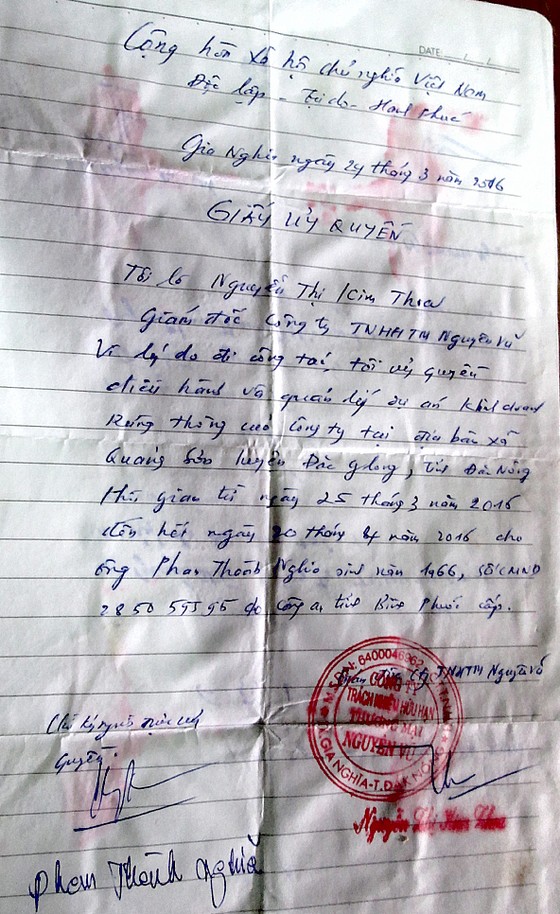 DATE
Cộng hòa xã hội chủ nghĩa Việt Nam
Độc lập - Tự do - Hạnh Phúc
Gia Nghĩa ngày 24 tháng 3 năm 2016
GIẤY UỶ QUYỀN
Tôi là Nguyễn Thị Kim Thoa
Giám đốc Công ty TNHHTM Nguyên Vũ
Vì lý do đi công tác, tôi uỷ quyền
điều hành và quản lý dự án khoanh
Rừng thông của Công ty tại địa bàn xã
Quảng Sơn huyện Đắc Glong, tỉnh Đắc Nông
thời gian từ ngày 25 tháng 3 năm 2016
đến hết ngày 20 tháng 4 năm 2016 cho
ông Phan Thành Nghĩa sinh năm 1966, số CMND
285059595 do công an tỉnh Bình Phước cấp.
Công ty TNHHTM Nguyên Vũ
CÔNG TY
TRÁCH NHIỆM HỮU HẠN
THƯƠNG MẠI
NGUYÊN VŨ
GIA NGHĨA-T.ĐẮK NÔNG
Chữ ký người được uỷ
quyền.
Nguyễn Thị Kim Thoa
Phan Thành Nghĩa